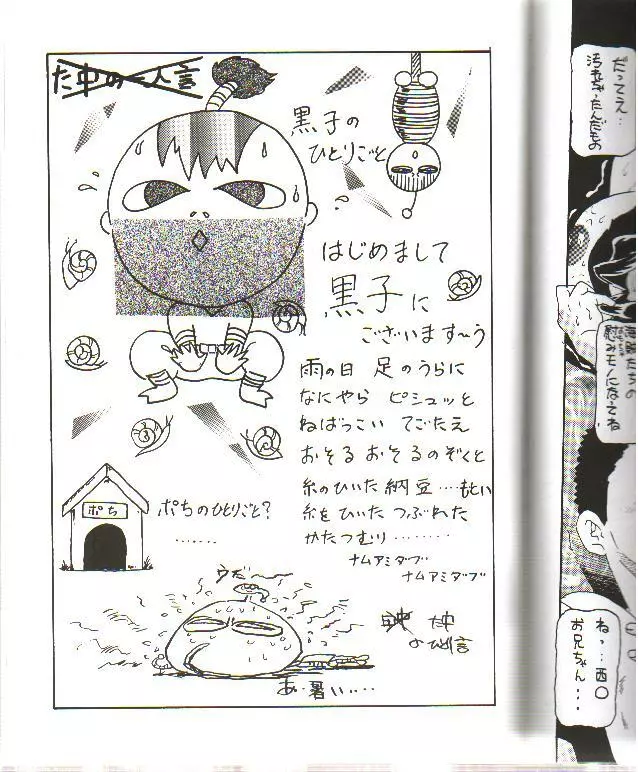 た中の一人言
黒子の
ひとりごと
はじめまして
黒子に
ございますーう
雨の日 足のうらに
なにやら ピシュッと
ねばっこい てごたえ
おそる おそるのぞくと
糸のひいた納豆……もとい
糸をひいた つぶれた
かたつむり………
ナムアミダブ
ナムアミダブ
ポち
ポちのひとりごと?
……
うだ〜
た中
のひと言
あ・暑い……
だってえ…
汚れちゃったんだもの
慰みモノになってね
ねっ…西〇
お兄ちゃん…